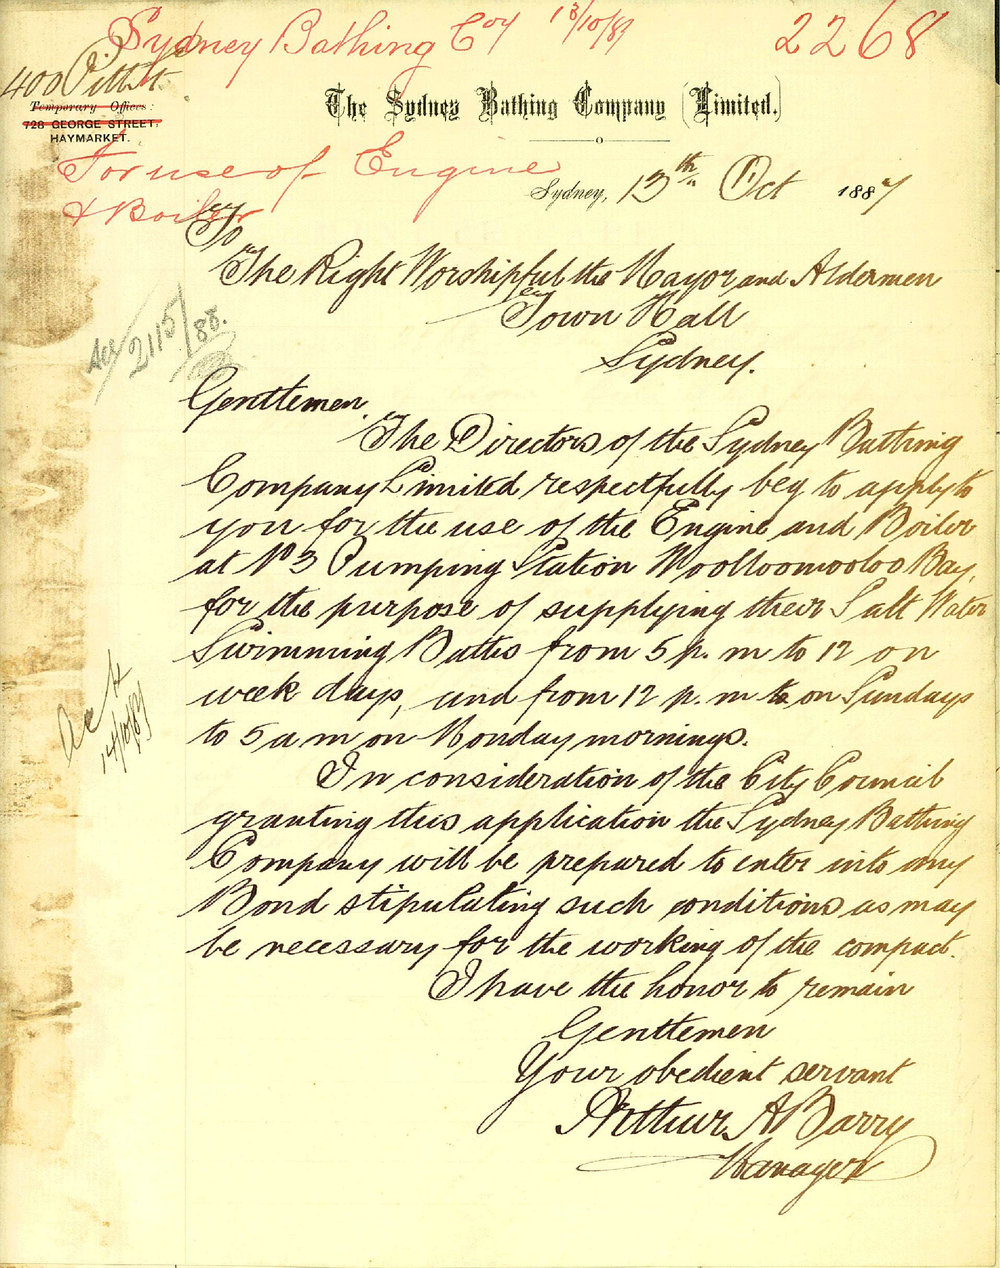 Sydney Bathing Coy 13/10/87
2268
400 Pitt St.
Temporary Offices:
728 GEORGE STREET,
HAYMARKET.
The Sydney Bathing Company (Limited.)
For use of Engine
& Boiler
Sydney, 13th Oct 1887
To
The Right Worshipful the Mayor and Aldermen
Town Hall
Sydney.
2115/88.
Gentlemen,
The Directors of the Sydney Bathing
Company Limited respectfully beg to apply to
you for the use of the Engine and Boiler
at No 3 Pumping Station Woolloomooloo Bay,
for the purpose of supplying their Salt Water
Swimming Baths from 5 p. m to 12 on
week days, and from 12 p. m to on Sundays
to 5 a m on Monday mornings.
Ack
14/10/87
In consideration of the City Council
granting this application the Sydney Bathing
Company will be prepared to enter into any
Bond stipulating such conditions as may
be necessary for the working of the compact.
I have the honor to remain
Gentlemen
Your obedient servant
Arthur A Barry
Manager